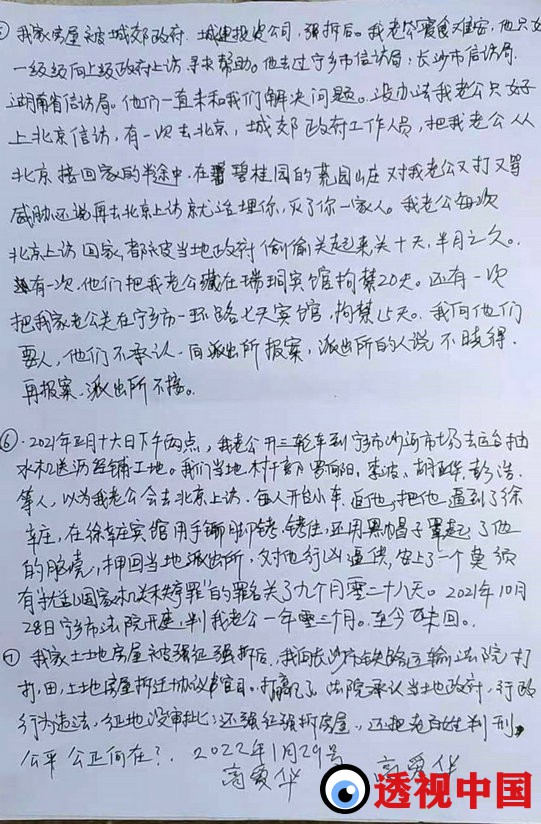 我家房屋被城郊政府、城建投资公司,强拆后。我老公寝食难安,他只好
一级级向上级政府上访寻求帮助。他去过宁乡市信访局;长沙市信访局
湖南省信访局。他们一直未和我们解决问题。没办法我老公只好
上北京信访,有一次去北京,城郊政府工作人员,把我老公从
北京接回家的半途中,在碧桂园的菜园山庄对我老公又打又骂
威胁还说再去北京上访就活埋你,灭了你一家人。我老公每次
北京上访回家,都被当地政府偷偷关起来,关十天,半月之久。
有一次,他们把我老公藏在瑞珂宾馆拘禁20天。还有一次
把我家老公关在宁乡市一环路七天宾馆,拘禁15天。我向他们
要人,他们不承认。向派出所报案,派出所的人说不晓得.
再报案.派出所不接。
⑥.2021年月十六日下午两点,我老公开三轮车到宁乡市沙河市场去运台抽
水机送沥经铺工地。我们当地村干部,李波、胡,彭浩.
等人,以为我老公会去北京上访.每人开台小车,追他,把他逼到了徐
车庄,在徐车庄宾馆用手铐脚铐铐住,还用黑帽子罩起了他
的脑壳,押回当地派出所,对他行凶逼供,安上了一个莫须
有"扰乱国家机关秩序罪"的罪名关了九个月零二十八天。2021年10月
28日宁乡市法院开庭,判我老公一年零三个月。至今未回。
⑦我家土地房屋被强征强拆后,我向长沙市铁路运输法院打
打,田,土地房屋拆迁协议书官司。打赢了,法院承认当地政府,行政
行为违法,征地没审批;还强征强拆房屋,还把老百姓判刑,
公平公正何在?.2022年1月29号
高爱华 高爱华
透视中国